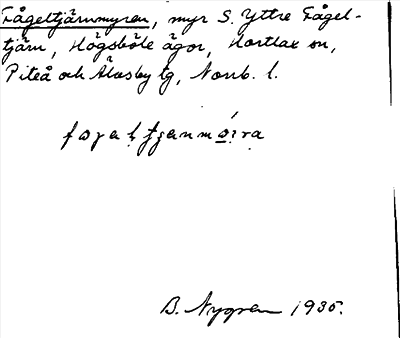 Fågeltjärnmyren, myr S. Yttre Fågel-
tjärn, Högsböle ägor, Hortlax sn,
Piteå och Älvsby tg, Norrb. l.
B. Nygren 1935.